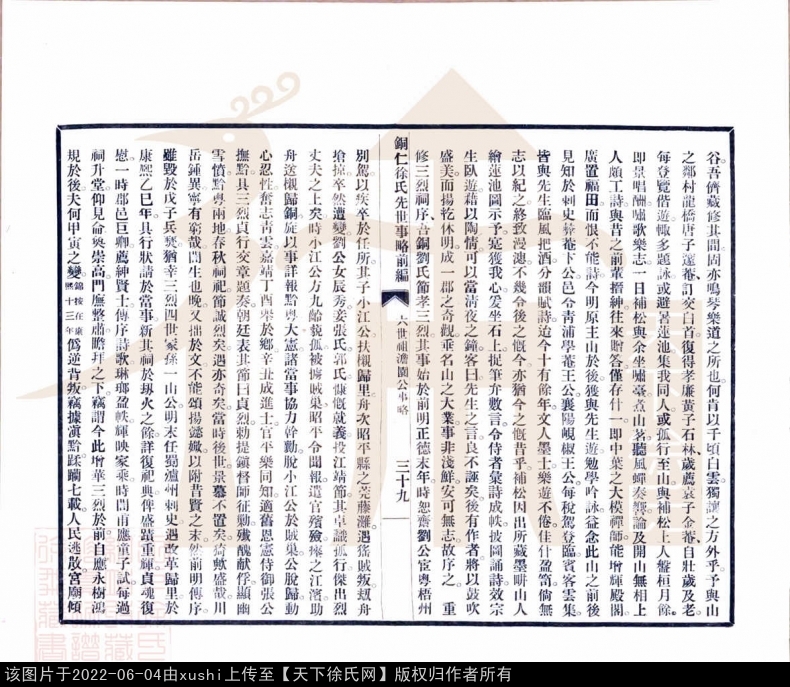 谷吾儕藏修其間固亦鳴琴樂道之所也何肯以千頃白雲獨讓之方外乎予與山
之鄰村龍橋唐子蓬菴訂交白首復得孝廉黃子石林歲薦袁子余菴自壯歲及老
每登覽偕遊輒多題詠或避暑蓮池集我同人或孤行至山與補松上人盤桓月餘
即景唱酬嘯歌樂志一日補松與余坐嘯臺煮山茗聽風蟬奏響論及開山無相上
人頗工詩與昔之前輩搢紳往來贈答僅存什一即中葉之大模禪師能增輝殿閣
廣置福田而恨不能詩今明原主山於後獲與先生遊勉學吟詠益念此山之前後
見知於刺史彝菴卞公邑令青浦學菴王公襄陽峴椒王公每稅駕登臨賓客雲集
皆與先生臨風把酒分韻賦詩迨今十有餘年文人墨士樂遊不倦佳什盈笥倘無
志以紀之終致漫漶不幾令後之慨今亦猶今之慨昔乎補松因出所藏墨畊山人
繪蓮池圖示予寔獲我心爰坐石上捉筆弁數言令侍者彙詩成帙披圖誦詩效宗
生臥遊藉以陶情可以當清夜之鐘客曰先生之言良不誣矣後有作者將以鼓吹
盛美而揚扢休明成一郡之奇觀垂名山之大業事非淺鮮安可無志故序之　重
修三烈祠序　吾銅劉氏節孝三烈其事始於前明正德末年時恕齋劉公宦粵梧州
銅仁徐氏先世事略前編
六世祖澹園公事略
三十九
別駕以疾卒於任所其子小江公扶櫬歸里舟次昭平縣之莞藤灘遇猺賊叛刼舟
搶掠卒然遭變劉公女辰秀妾張氏郭氏慷慨就義投江靖節其卓識孤行傑出烈
丈夫之上矣時小江公方九齡藐孤被擄賊巢昭平令聞報遣官殯殮瘞之江濱助
舟送櫬歸銅旋以事詳報黔粵大憲諸當事協力幹勦脫小江公於賊巢公脫歸動
心忍性奮志青雲嘉靖丁酉舉於鄉辛丑成進士官平樂同知適舊恩憲侍御張公
撫黔具三烈貞行交章題奏朝廷表其節曰貞烈勅提鎮督師征勦殲醜獻俘顯幽
雪憤黔粵兩地春秋祠祀節誠烈矣遇亦奇矣當時後世景慕不置矣猗歟盛哉川
岳鍾異寧有窮哉閏生也晚又拙於文不能頌揚懿媺以附昔賢之末然前明傳序
雖毀於戊子兵燹猶幸三烈四世冢孫一山公明末任蜀瀘州刺史遇改革歸里於
康熙乙巳年具行狀請於當事新其祠於兵火之餘詳復祀典俾盛蹟重輝貞魂復
慰一時郡邑巨卿薦紳賢士傳序詩歌琳瑯盈帙輝映家乘時閏甫應童子試每過
祠升堂仰見崙奐崇高門廡整肅瞻拜之下竊謂今此增華三烈於前自應永樹鴻
規於後夫何甲寅之變錦按在康熙十三年偽逆背叛竊據滇黔蹂躪七載人民逃散宮廟傾
該图片于2022-06-04由xushi上传至【天下徐氏网】版权归作者所有